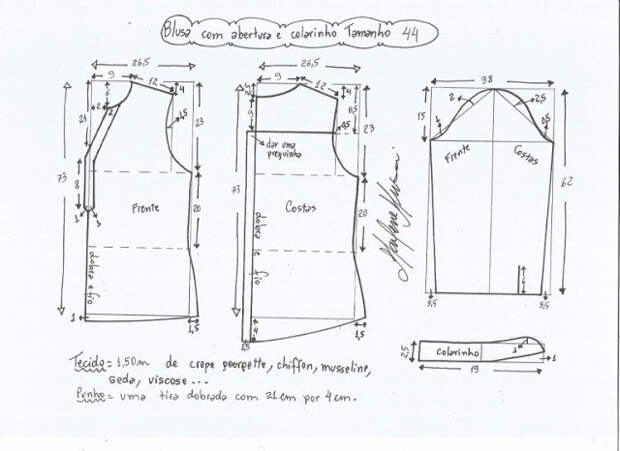 Blusa com abertura e colarinho Tamanho 44
26,5
9
12
4
2
2
21
1,5
23
73
8
Frente
20
1
1
dobra e fio
1
1,5
26,5
9
12
4
9
0,5
23
dar uma preguinha
73
Costas
20
dobra e fio
4
1,5
1,5
38
15
2
2,5
1
0,5
Frente
Costas
62
6
3,5
3,5
2,5
colarinho
1
1
19
Tecido = 1,50m de crepe georgette, chiffon, musseline,
seda, viscose ...
Punho = uma tira dobrada com 21 cm por 4 cm.